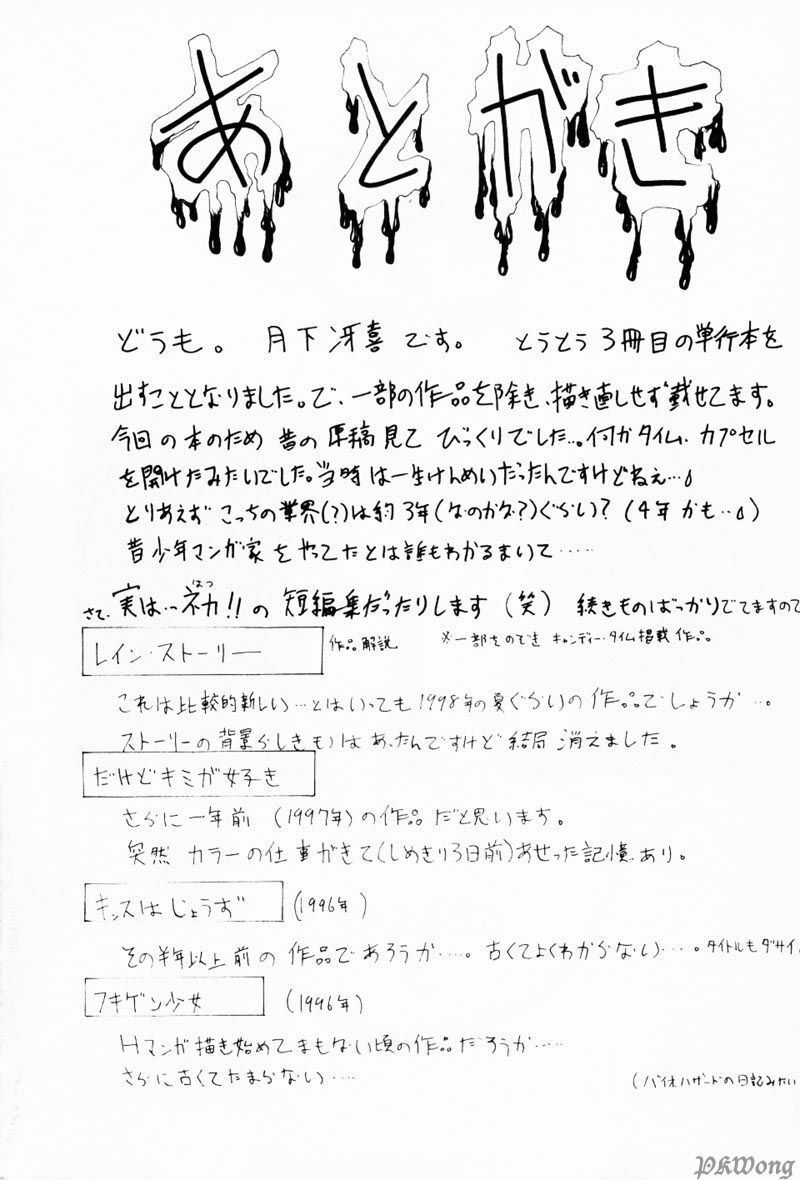 あとがき
どうも。 月下冴喜です。 とうとう3冊目の単行本を
出すこととなりました。で、一部の作品を除き、描き直しせず載せてます。
今回の本のため昔の原稿見てびっくりでした…。何かタイム・カプセル
を開けたみたいでした。当時は一生けんめいだったんですけどねえ…
とりあえずこっちの業界(?)は約3年(なのかな?)ぐらい?(4年かも…)
昔少年マンガ家をやってたとは誰もわかるまいて……
さて、実は…初!!の短編集だったりします(笑) 続きものばっかりでてますので
はつ
レイン・ストーリー 作品解説 ※一部をのぞき キャンディー・タイム掲載作品。
これは比較的新しい…とはいっても1998年の夏ぐらいの作品でしょうか…。
ストーリーの背景らしきものはあったんですけど結局消えました。
だけどキミが好き
さらに一年前(1997年)の作品だと思います。
突然カラーの仕事がきて(しめきり3日前)あせった記憶あり。
キッスはじょうず (1996年)
その半年以上前の作品であろうか…。古くてよくわからない…。タイトルもダサイ。
フキゲン少女 (1996年)
Hマンガ描き始めてまもない頃の作品だろうか……
さらに古くてたまらない…
(バイオハザードの日記みたい
PKWong